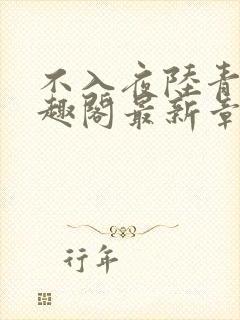 不入夜陸青
趣閣最新章
行年